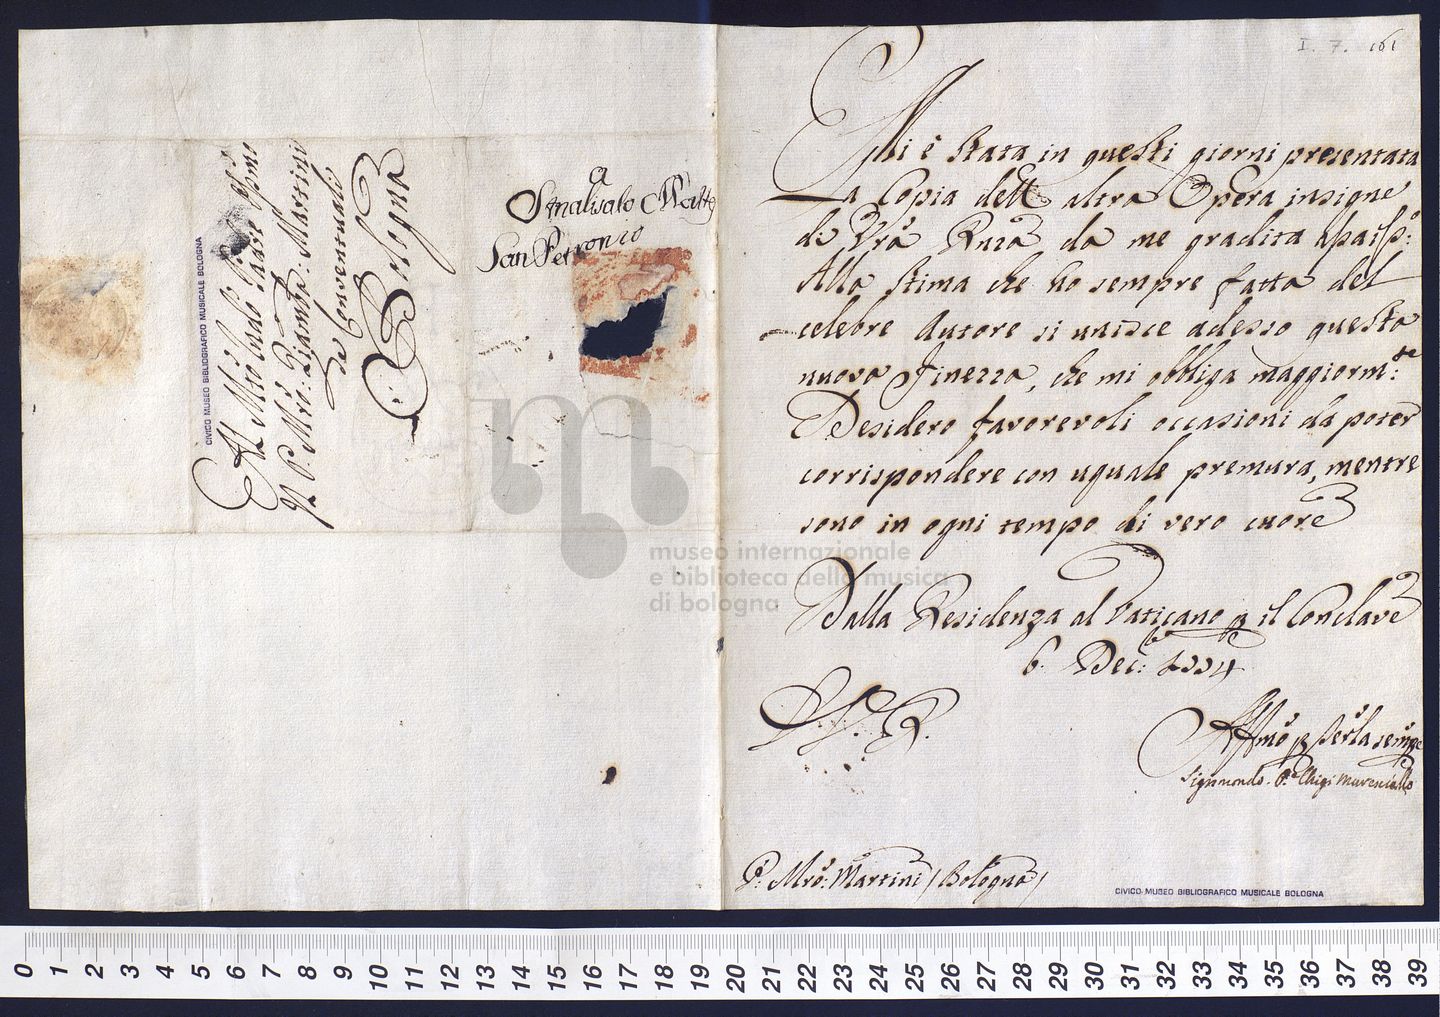 Al Mto Rndo Padre
Pr. P. Mro: Giamba: Martini
de Conventuali
Bologna
a
San Petronio
CIVICO MUSEO BIBLIOGRAFICO MUSICALE BOLOGNA
I. 7. 161
Mi è stata in questi giorni presentata
La Copia dell' altra Opera insigne
di Vrã Rnza da me gradita
Alla stima che ho sempre fatta del
celebre Autore si unisce adesso questa
nuova finezza, che mi obbliga maggiorm:te
Desidero favorevoli occasioni da poter
corrispondere con uguale premura, mentre
sono in ogni tempo di vero cuore
Dalla Residenza al Vaticano p il Conclave
6. Dec: 1774
V. R.
Affmo p serla sempe
Sigismondo Pe Chigi Maresciallo
P: Mro: Martini (Bologna)
CIVICO MUSEO BIBLIOGRAFICO MUSICALE BOLOGNA
museo internazionale
e biblioteca della musica
di bologna
0 1 2 3 4 5 6 7 8 9 10 11 12 13 14 15 16 17 18 19 20 21 22 23 24 25 26 27 28 29 30 31 32 33 34 35 36 37 38 39